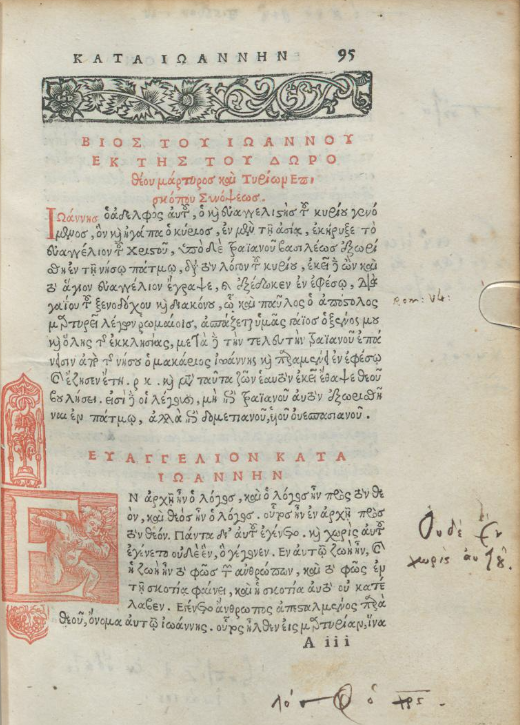 ΚΑΤΑ ΙΩΑΝΝΗΝ 95
ΒΙΟΣ ΤΟΥ ΙΩΑΝΝΟΥ
ΕΚ ΤΗΣ ΤΟΥ ΔΩΡΟ
θέου μάρτυρος καὶ Τυρίων Επι-
σκόπου Συνόψεως.
Ιωάννης ὁ ἀδελφὸς αὐτοῦ, ὁ καὶ εὐαγγελιστὴς τοῦ κυρίου γενό
μενος, ὃν καὶ ἠγάπα ὁ κύριος, ἐν μὲν τῇ ἀσίᾳ, ἐκήρυξε τὸ
εὐαγγέλιον τοῦ Χριστοῦ, ὑπὸ δὲ τραϊανοῦ βασιλέως ἐξωρί
σθη ἐν τῇ νήσῳ πάτμῳ, διὰ τὸν λόγον τοῦ κυρίου, ἐκεῖ δὲ ὢν καὶ
τὸ ἅγιον εὐαγγέλιον ἔγραψε, καὶ ἐξέδωκεν ἐν ἐφέσῳ, διὰ
γαΐου τοῦ ξενοδόχου καὶ διακόνου, ᾧ καὶ παῦλος ὁ ἀπόστολος
μαρτυρεῖ λέγων ῥωμαίοις, ἀσπάζεται ὑμᾶς γάϊος ὁ ξένος μου
καὶ ὅλης τῆς ἐκκλησίας, μετὰ δὲ τὴν τελευτὴν τραϊανοῦ ἐπά
νεισιν ἀπὸ τῆς νήσου ὁ μακάριος ἰωάννης καὶ ἐν ἐφέσῳ
καὶ ἔζησεν ἔτη. ρ κ. καὶ μετὰ ταῦτα ζῶν ἑαυτὸν ἐκεῖ ἔθαψε θεοῦ
βουλήσει. εἰσὶ δὲ οἳ λέγουσι, μὴ ἐπὶ τραϊανοῦ αὐτὸν ἐξωρισθῆ
ναι ἐν πάτμῳ, ἀλλὰ ἐπὶ δομετιανοῦ, υἱοῦ οὐεσπασιανοῦ.
ΕΥΑΓΓΕΛΙΟΝ ΚΑΤΑ
ΙΩΑΝΝΗΝ
ΕΝ ἀρχῇ ἦν ὁ λόγος, καὶ ὁ λόγος ἦν πρὸς τὸν θε
ὸν, καὶ θεὸς ἦν ὁ λόγος. οὗτος ἦν ἐν ἀρχῇ πρὸς
τὸν θεόν. Πάντα δι' αὐτοῦ ἐγένετο. καὶ χωρὶς αὐτοῦ
ἐγένετο οὐδὲ ἓν, ὃ γέγονεν. Εν αὐτῷ ζωὴ ἦν, καὶ
ἡ ζωὴ ἦν τὸ φῶς τῶν ἀνθρώπων, καὶ τὸ φῶς ἐν
τῇ σκοτίᾳ φαίνει, καὶ ἡ σκοτία αὐτὸ οὐ κατέ
λαβεν. Εγένετο ἄνθρωπος ἀπεσταλμένος παρὰ
θεοῦ, ὄνομα αὐτῷ ἰωάννης. οὗτος ἦλθεν εἰς μαρτυρίαν, ἵνα
A iii
Οὐδὲ ἓν
χωρὶς αὐτοῦ.